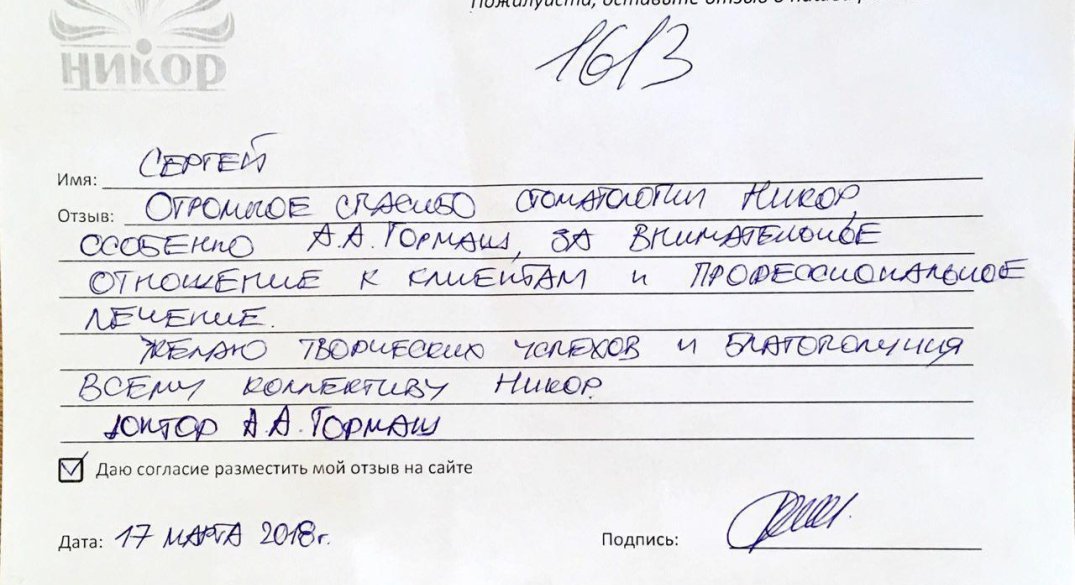 Пожалуйста, оставьте отзыв о
1613
НИКОР
Имя: СЕРГЕЙ
Отзыв: ОГРОМНОЕ СПАСИБО СТОМАТОЛОГИИ НИКОР,
ОСОБЕННО А.А. ГОРМАШ, ЗА ВНИМАТЕЛЬНОЕ
ОТНОШЕНИЕ К КЛИЕНТАМ И ПРОФЕССИОНАЛЬНОЕ
ЛЕЧЕНИЕ.
ЖЕЛАЮ ТВОРЧЕСКИХ УСПЕХОВ И БЛАГОПОЛУЧИЯ
ВСЕМУ КОЛЛЕКТИВУ НИКОР.
ДОКТОР А.А. ГОРМАШ
Даю согласие разместить мой отзыв на сайте
Дата: 17 МАРТА 2018г. Подпись: